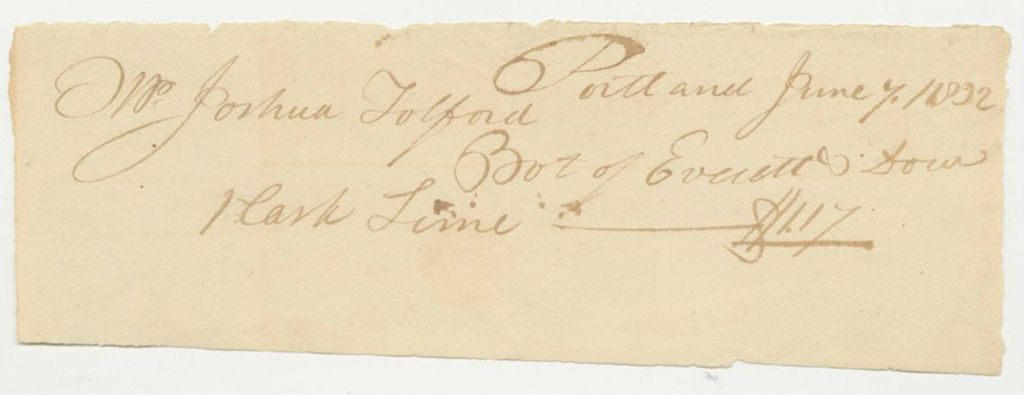 Portland June 7. 1832
Mr. Joshua Tolford
Bot of Everett & Dow
1 Cask Lime $1.17